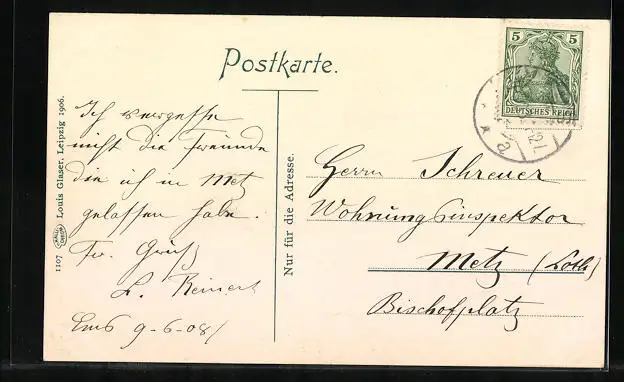 Postkarte.
5 5
DEUTSCHES REICH
Ich vergesse
nicht die Freunde
die ich in Metz
gelassen habe.
Fr. Gruß
L. Reinert
Ems 9-6-08
Nur für die Adresse.
Herrn Schreuer
Wohnungsinspektor
Metz (Loth)
Bischofplatz
1107 Louis Glaser, Leipzig 1906.